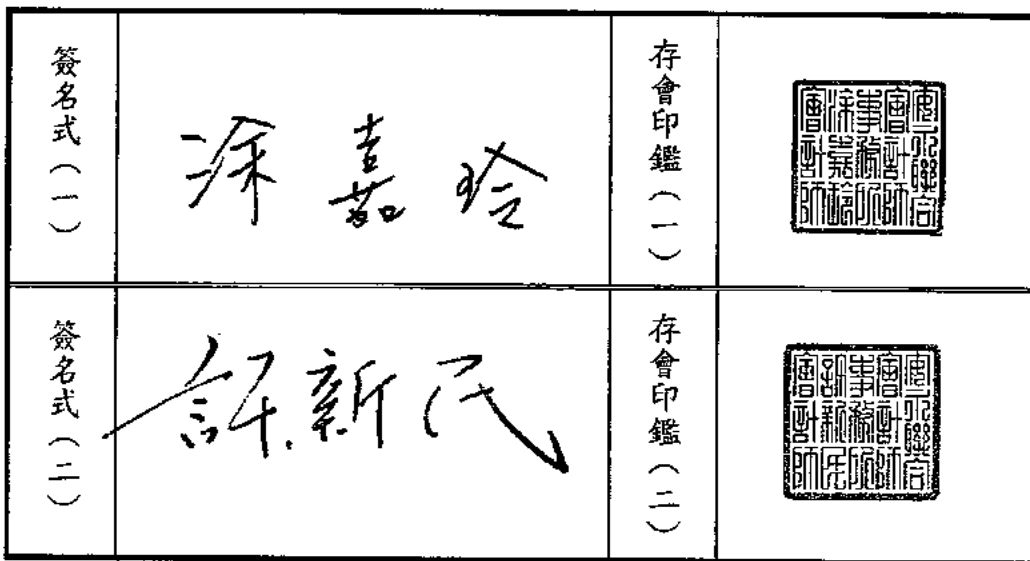 簽名式（一）
涂嘉玲
存會印鑑（一）
安永聯合
會計師
事務所
涂嘉玲
會計師
簽名式（二）
許新民
存會印鑑（二）
安永聯合
會計師
事務所
許新民
會計師